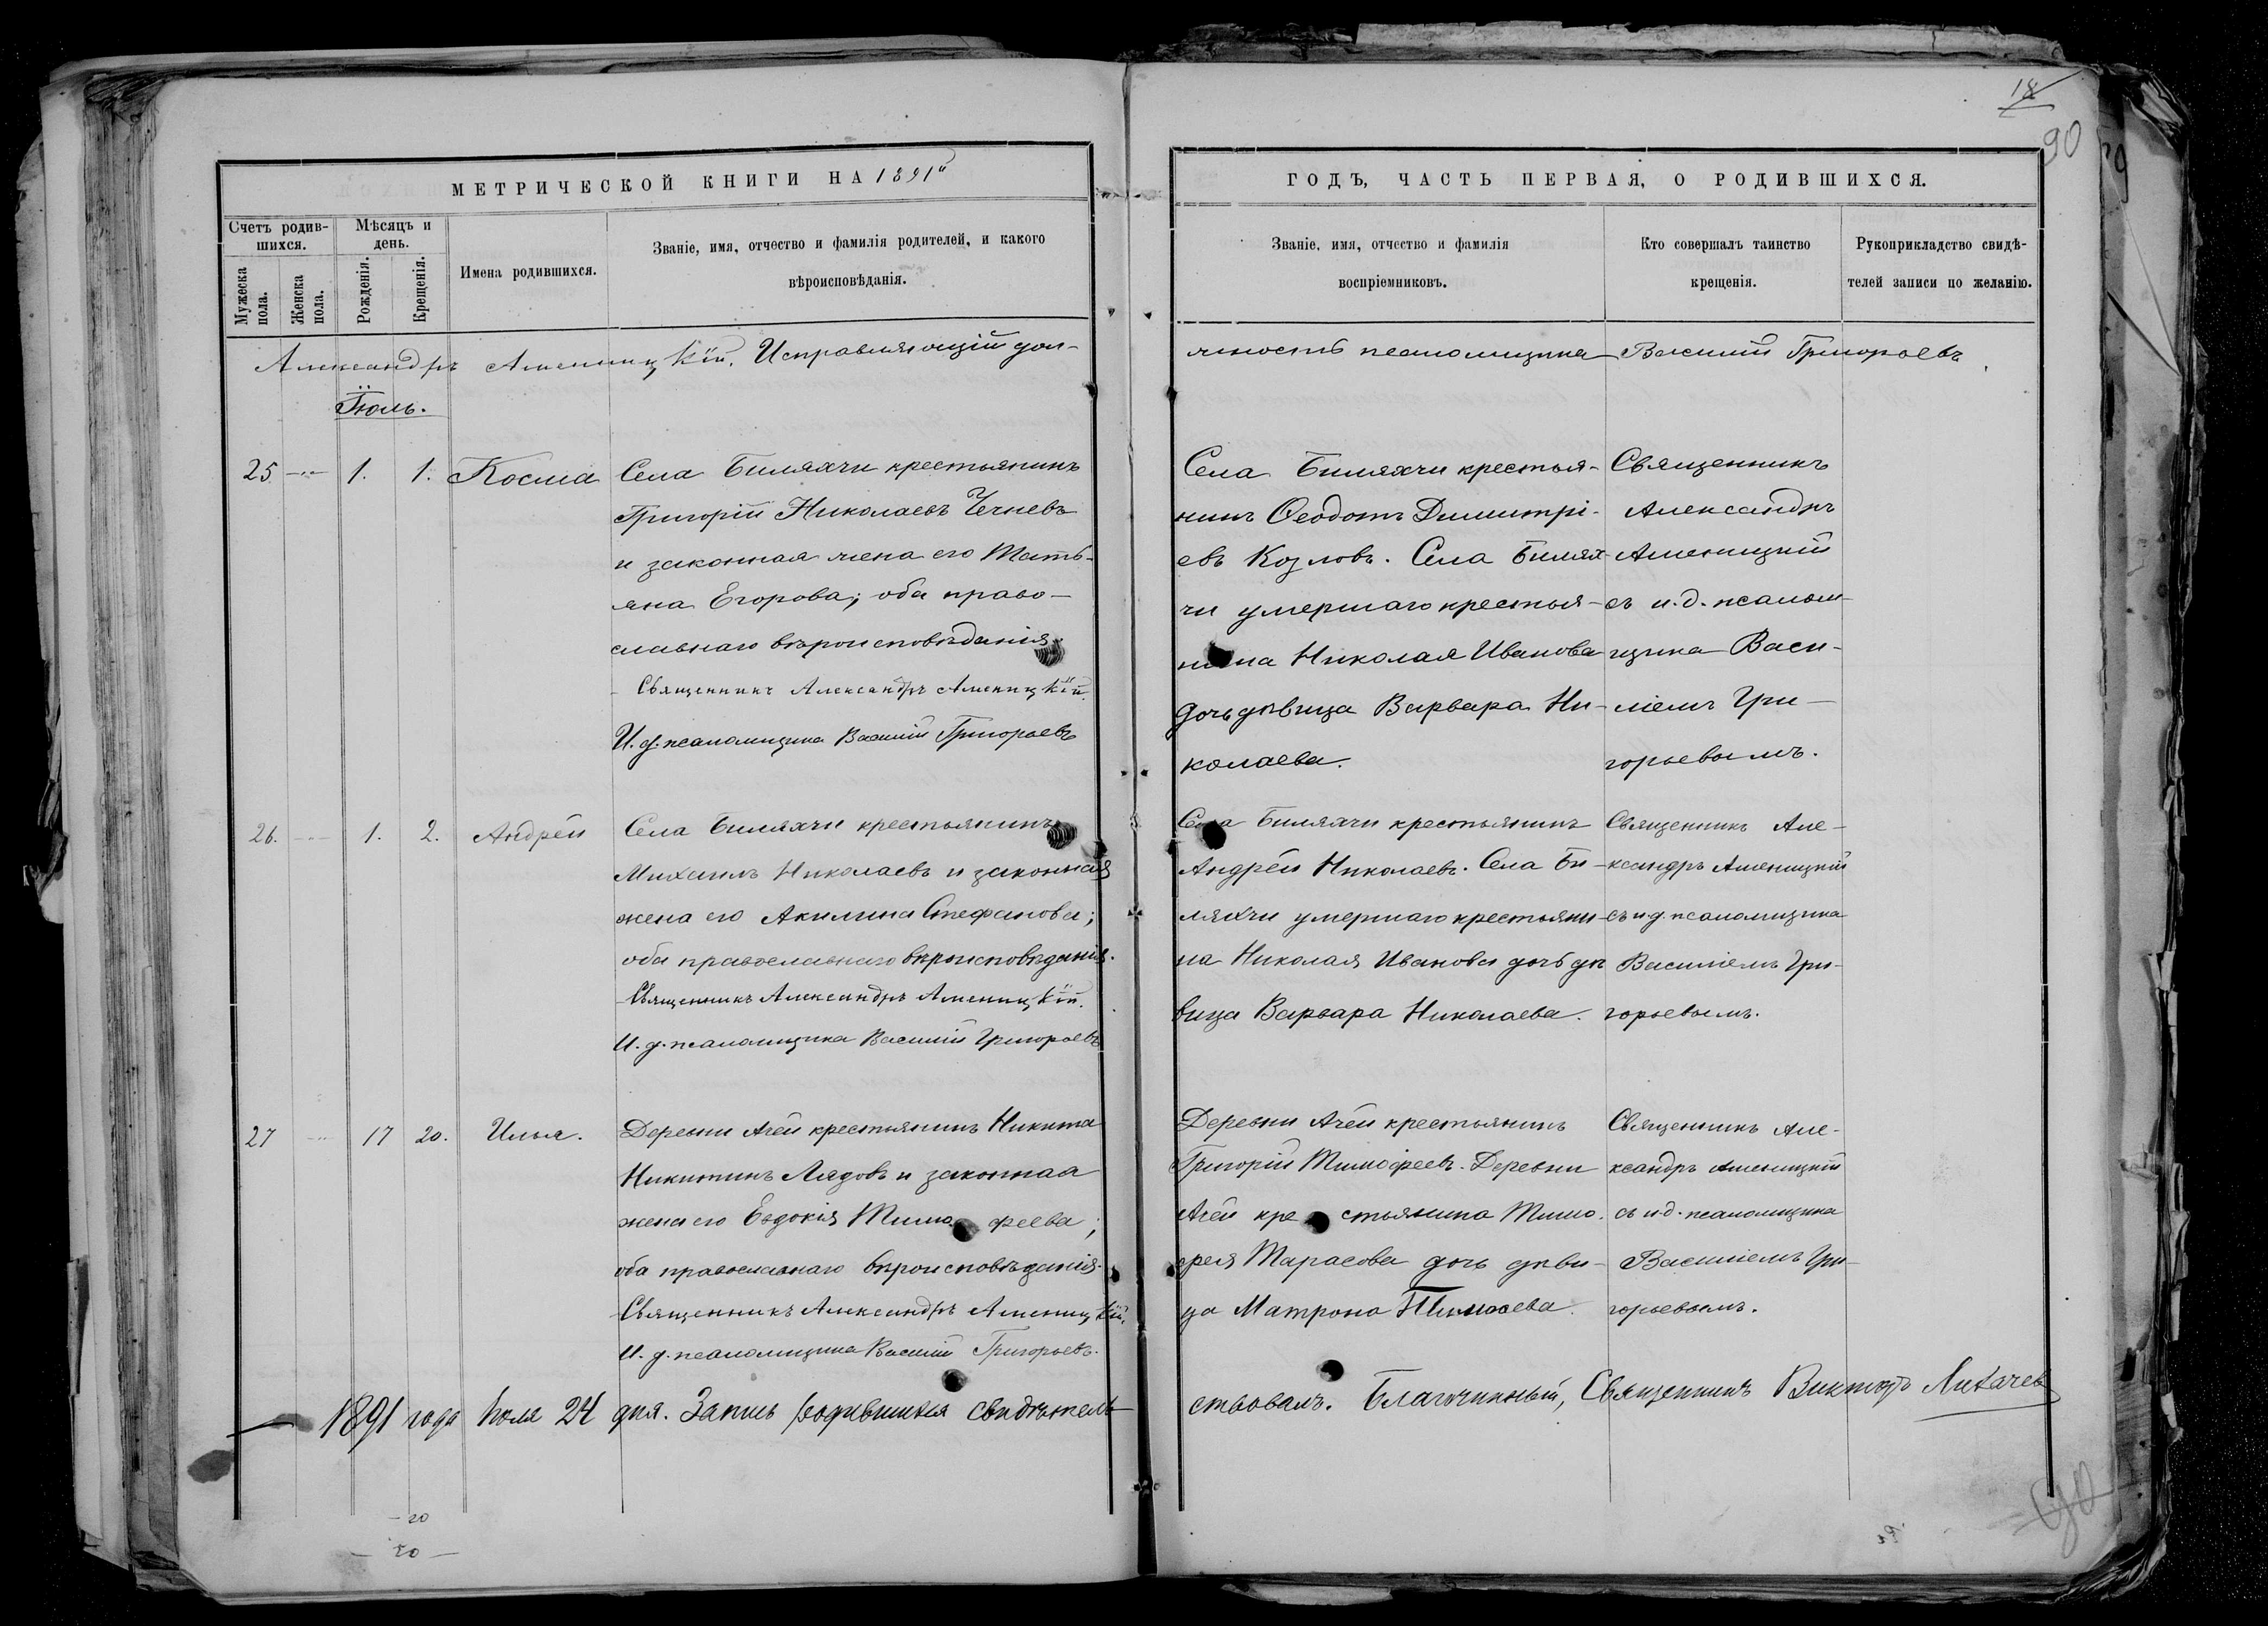 18
90
МЕТРИЧЕСКОЙ КНИГИ НА 1891й
ГОДЪ, ЧАСТЬ ПЕРВАЯ, О РОДИВШИХСЯ.
Счетъ родив-
шихся.
Мужеска пола.
Женска пола.
Мѣсяцъ и
день.
Рожденія.
Крещенія.
Имена родившихся.
Званіе, имя, отчество и фамилія родителей, и какого
вѣроисповѣданія.
Званіе, имя, отчество и фамилія
воспріемниковъ.
Кто совершалъ таинство
крещенія.
Рукоприкладство свидѣ-
телей записи по желанію.
Александръ Аменицкій. Исправляющій дол-
жность псаломщика Василій Григорьевъ
Іюль.
25 1. 1. Косма
Села Биляхчи крестьянинъ
Григорій Николаевъ Чечневъ
и законная жена его Тать-
яна Егорова; оба право-
славнаго вѣроисповѣданія.
Священникъ Александръ Аменицкій.
И. д. псаломщика Василій Григорьевъ
Села Биляхчи крестья-
нинъ Ѳеодотъ Димитрі-
евъ Козловъ. Села Билях-
чи умершаго крестья-
нина Николая Иванова
дочь дѣвица Варвара Ни-
колаева.
Священникъ
Александръ
Аменицкій
съ и. д. псалом-
щика Васи-
ліемъ Гри-
горьевымъ.
26. 1. 2. Андрей
Села Биляхчи крестьянинъ
Михаилъ Николаевъ и законная
жена его Акилина Стефанова;
оба православнаго вѣроисповѣданія.
Священникъ Александръ Аменицкій.
И. д. псаломщика Василій Григорьевъ
Села Биляхчи крестьянинъ
Андрей Николаевъ. Села Би-
ляхчи умершаго крестьяни-
на Николая Иванова дочь дѣ
вица Варвара Николаева.
Священникъ Але-
ксандръ Аменицкій
съ и. д. псаломщика
Василіемъ Гри-
горьевымъ.
27 17 20. Илья.
Деревни Ачей крестьянинъ Никита
Никитинъ Лядовъ и законная
жена его Евдокія Тимофеева;
оба православнаго вѣроисповѣданія.
Священникъ Александръ Аменицкій.
И. д. псаломщика Василій Григорьевъ.
Деревни Ачей крестьянинъ
Григорій Тимофеевъ. Деревни
Ачей крестьянина Тимо-
фея Тарасова дочь дѣви-
ца Матрона
Священникъ Але-
ксандръ Аменицкій
съ и. д. псаломщика
Василіемъ Гри-
горьевымъ.
1891 года Іюля 24 дня. Запись родившихся свидѣтель-
ствовалъ. Благочинный, Священникъ Викторъ Лихачев
20
20
90